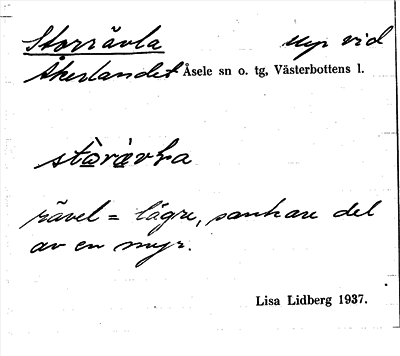 Storrävla myr vid
Åkerlandet Åsele sn o. tg, Västerbottens l.
rävel = lägre, sankare del
av en myr.
Lisa Lidberg 1937.